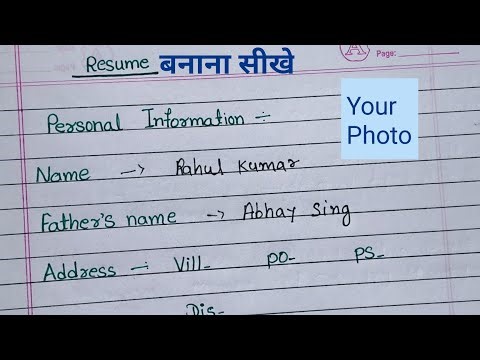 Page:
Resume बनाना सीखे
Your
Photo
Personal Information ÷
Name → Rahul Kumar
Father's name → Abhay Sing
Address ÷ Vill- PO- PS-
Dis-